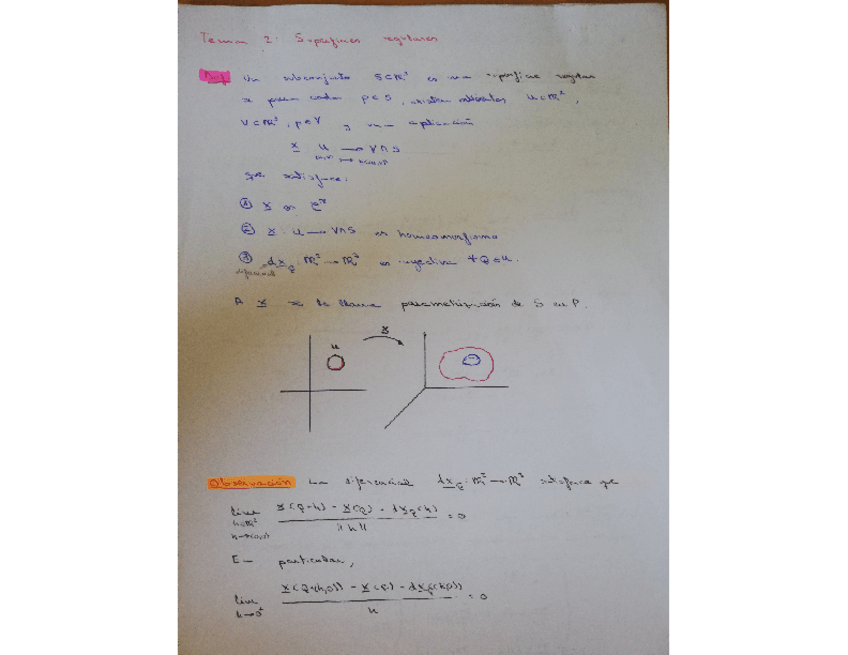 Tema 2: Superficies regulares
Def Un subconjunto S⊂ℝ³ es una superficie regular
si para cada p∈S, existen abiertos U⊂ℝ²,
V⊂ℝ³, p∈V y una aplicación
x U → V∩S
(u,v) → x(u,v)
que satisface:
① x es C^∞
② x: U → V∩S es homeomorfismo
③ dx_Q: ℝ² → ℝ³ es inyectiva ∀Q∈U.
diferencial
A x se le llama parametrización de S en P.
U x
Observación La diferencial dx_Q: ℝ² → ℝ³ satisface que
lim x(Q+h) - x(Q) - dx_Q(h) / ||h|| = 0
h∈ℝ²
h→(0,0)
En particular,
lim x(Q+(h,0)) - x(Q) - dx_Q(h,0) / h = 0
h→0⁺